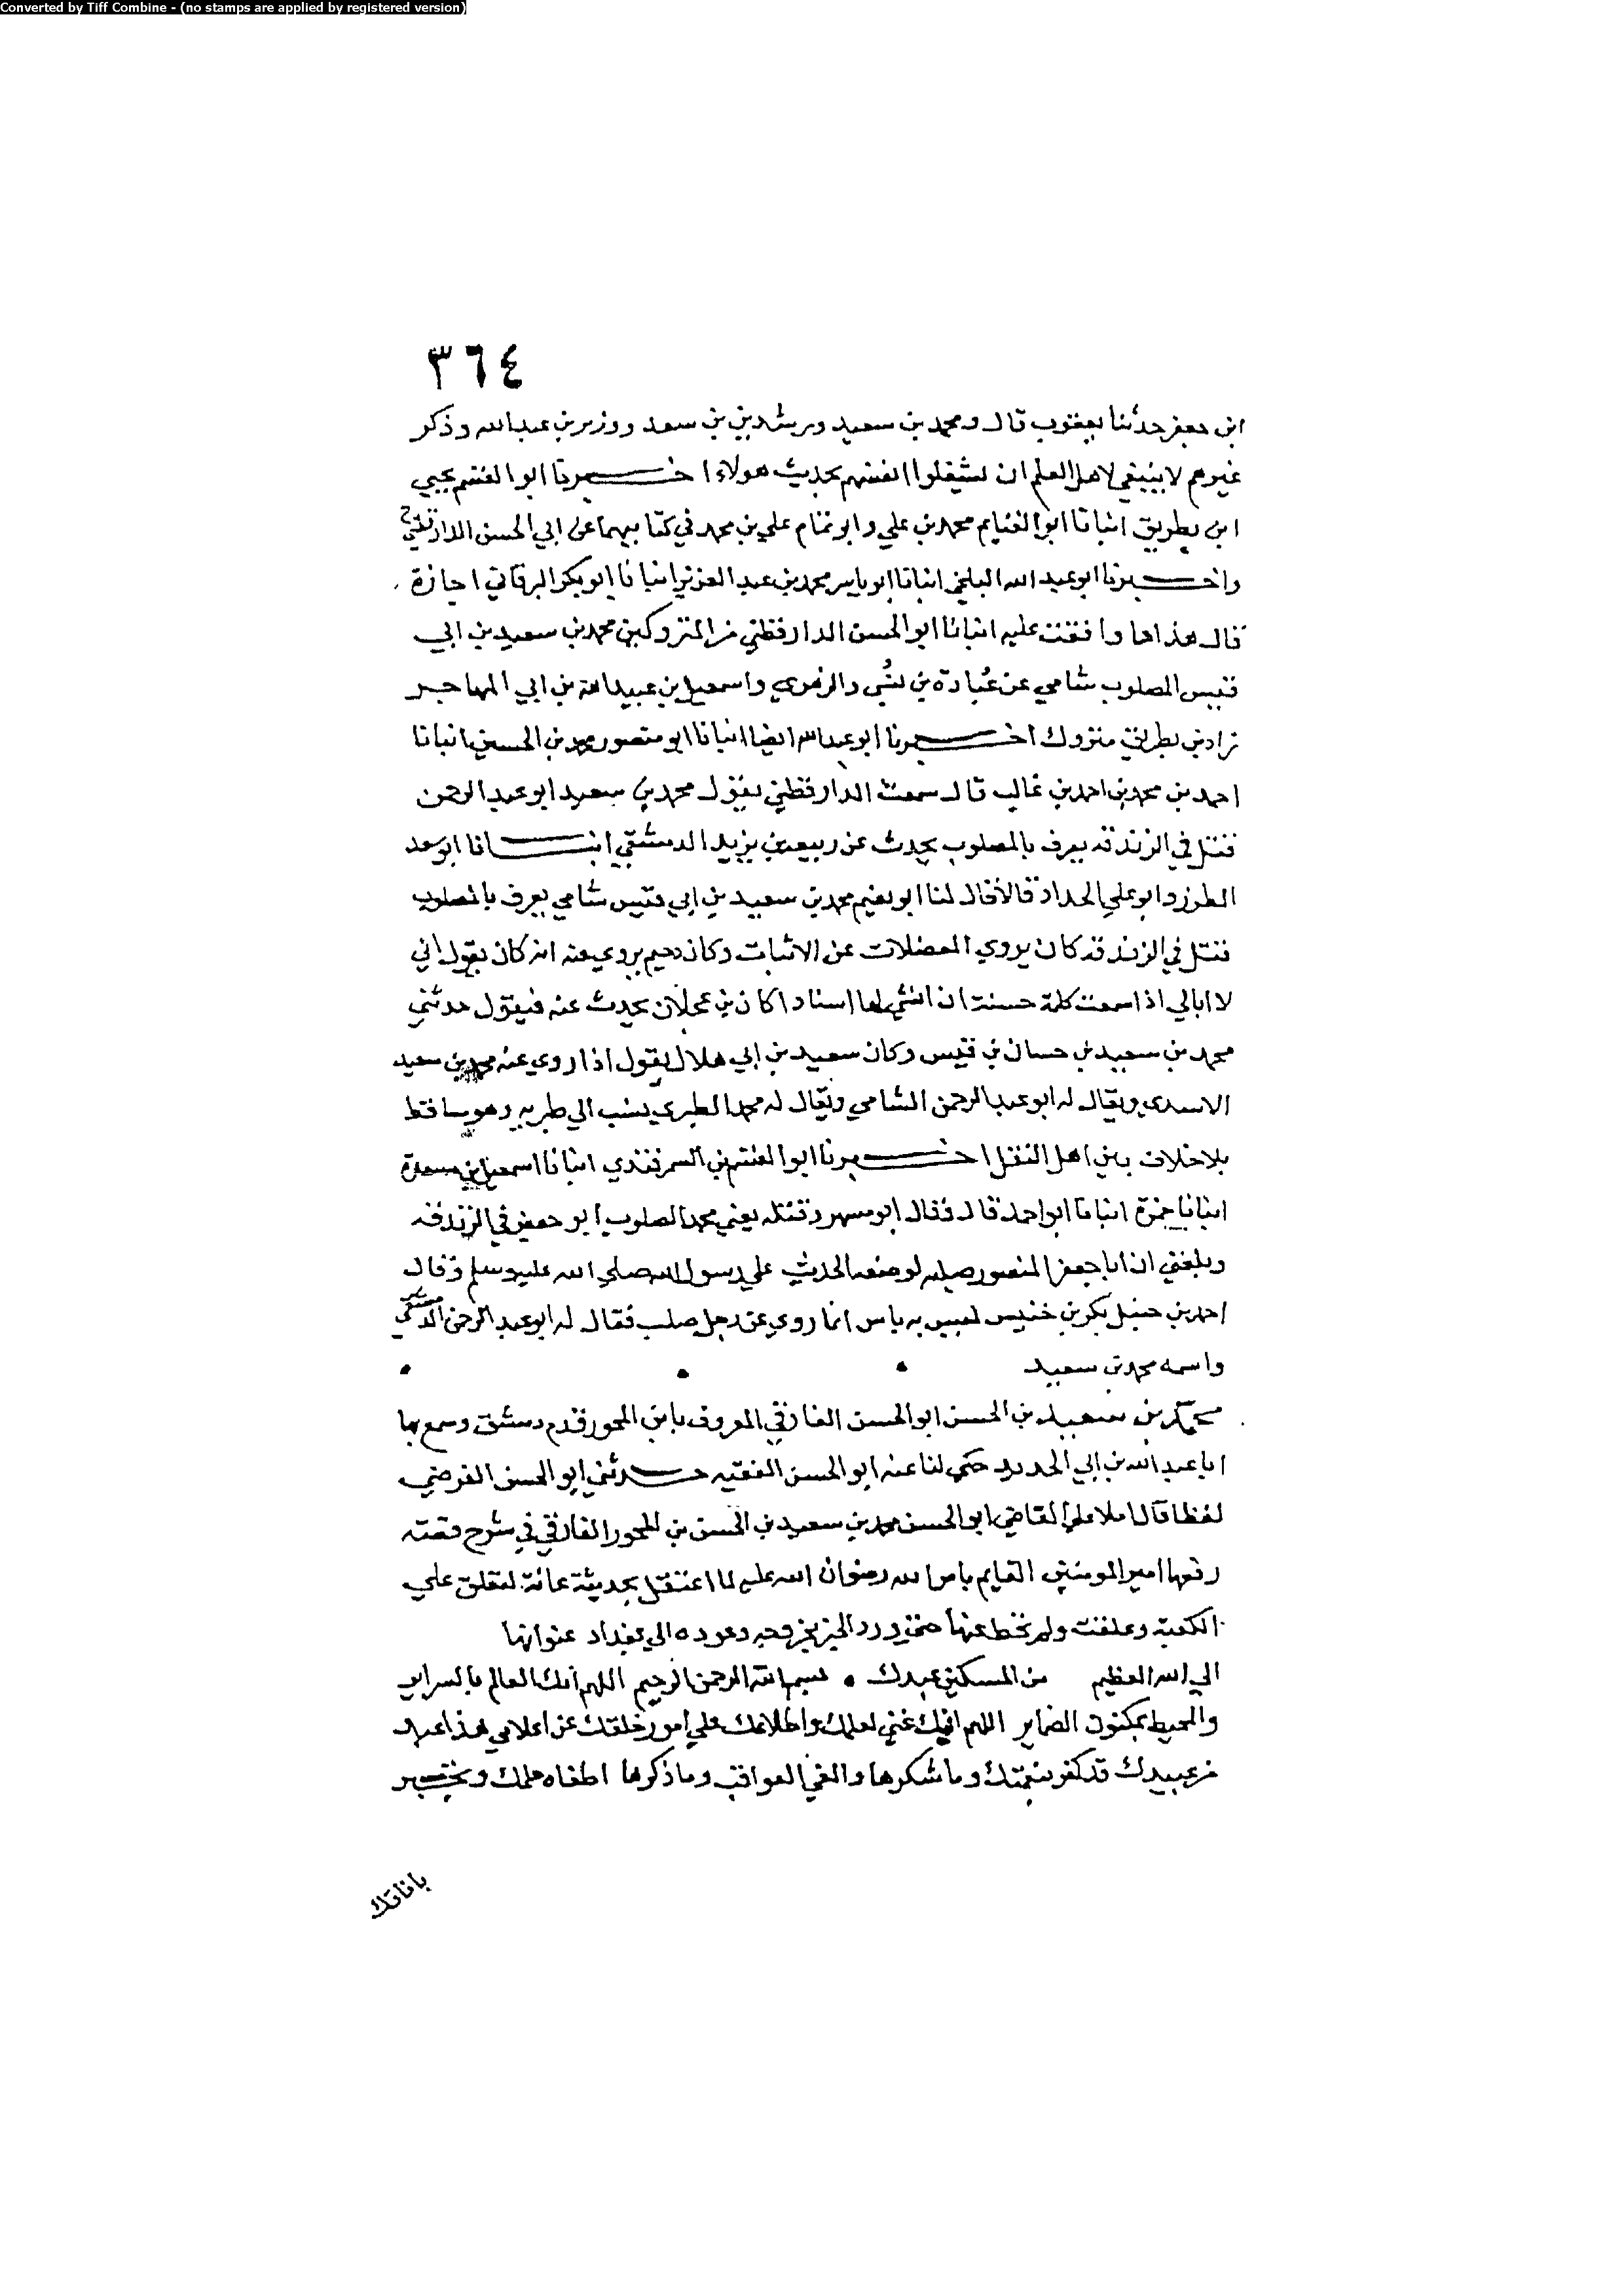 Converted by Tiff Combine - (no stamps are applied by registered version)
٣٦٤
ابن جعفر حدثنا يعقوب قال ومحمد بن سعيد ورشدين بن سعد ووزير بن عبد الله وذكر
غيرهم لا ينبغي لاهل العلم ان يشغلوا انفسهم بحديث هولاء اخبرنا ابو القسم يحيى
ابن بطريق انبانا ابو الغنايم محمد بن علي وابو تمام علي بن محمد في كتابيهما عن ابي الحسن الدارقطني ح
واخبرنا ابو عبد الله البلخي انبانا ابو ياسر محمد بن عبد العزيز انبانا ابو بكر البرقاني اجازة
قال هذا ما وافقت عليه انبانا ابو الحسن الدارقطني من المتروكين محمد بن سعيد بن ابي
قيس المصلوب شامي عن عُبادة بن نُسَي والزهري واسمعيل بن عبيد الله بن ابي المهاجر
زاد بن بطريق متروك اخبرنا ابو عبد الله ايضا انبانا ابو منصور محمد بن الحسين انبانا
احمد بن محمد بن احمد بن غالب قال سمعت الدارقطني يقول محمد بن سعيد ابو عبد الرحمن
قتل في الزندقه يعرف بالمصلوب يحدث عن ربيعة بن يزيد الدمشقي انبانا ابو سعد
المطرز وابو علي الحداد قالا قال لنا ابو نعيم محمد بن سعيد بن ابي قيس شامي يعرف بالمصلوب
قتل في الزندقه كان يروي المعضلات عن الاثبات وكان دحيم يروي عنه انه كان يقول اني
لا ابالي اذا سمعت كلمة حسنة ان انشي لها اسنادا كان بن عجلان يحدث عنه فيقول حدثني
محمد بن سعيد بن حسان بن قيس وكان سعيد بن ابي هلال يقول اذا روي عنه محمد بن سعيد
الاسدي ويقال له ابو عبد الرحمن الشامي ويقال له محمد الطبري ينسب الى طبريه وهو ساقط
بلا خلاف بين اهل النقل اخبرنا ابو القسم بن السمرقندي انبانا اسمعيل بن مسعدة
انبانا حمزة انبانا ابو احمد قال فقال ابو مسهر وقتله يعني محمد المصلوب ابو جعفر في الزندقه
وبلغني ان ابا جعفر المنصور صلبه لوضعه الحديث على رسول الله صلى الله عليه وسلم وقال
احمد بن حنبل بكر بن خنيس ليس به باس انما روي عن رجل صلب فقال له ابو عبد الرحمن الدمشقي
واسمه محمد بن سعيد
محمد بن سعيد بن الحسن ابو الحسن الفارقي المعروف بابن المحور قدم دمشق وسمع بها
ابا عبد الله بن ابي الحديد حكي لنا عنه ابو الحسن الفقيه حدثني ابو الحسن الفرضي
لفظا قال املا علي القاضي ابو الحسن محمد بن سعيد بن الحسن بن المحور الفارقي في شرح قصته
رفعها امير المومنين القايم بامر الله رضوان الله عليه لما اعتقل بحديثة عانة لتعلق على
الكعبة وعلقت ولم تحط عنها حتى ورد الخبر بخروجه وعوده الى بغداد عنوانها
الى الله العظيم من المسكين عبدك بسم الله الرحمن الرحيم اللهم انك العالم بالسراير
والمحيط بمكنون الضماير اللهم انك غني بعلمك واطلاعك على امور خلقك عن اعلامي هذا عبد
من عبيدك قد كفر نعمتك وما شكرها والغى العواقب وما ذكرها اطغاه حلمك وتجبر
باناتك